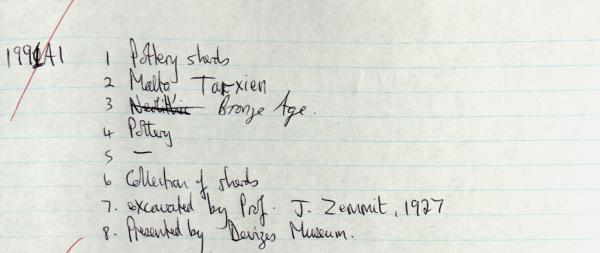 1991A1 1 Pottery sherds
2 Malta Tarxien
3 Neolithic Bronze Age.
4 Pottery
5 —
6 Collection of sherds
7. excavated by Prof. J. Zemmit, 1927
8. Presented by Devizes Museum.